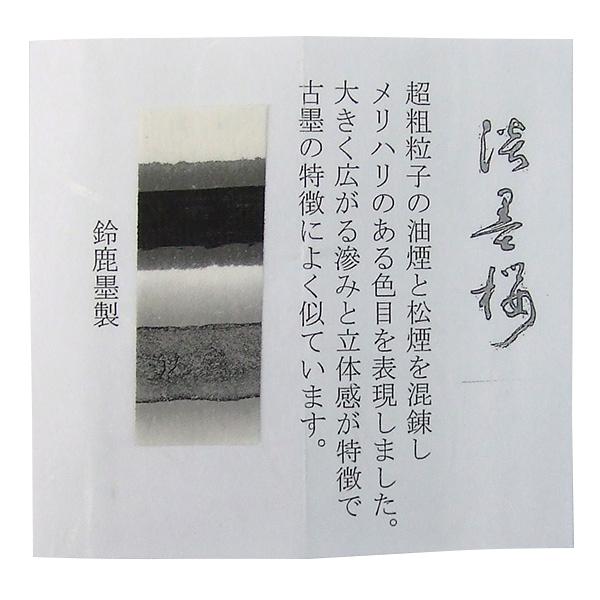 淡墨桜
超粗粒子の油煙と松煙を混錬し
メリハリのある色目を表現しました。
大きく広がる滲みと立体感が特徴で
古墨の特徴によく似ています。
鈴鹿墨製